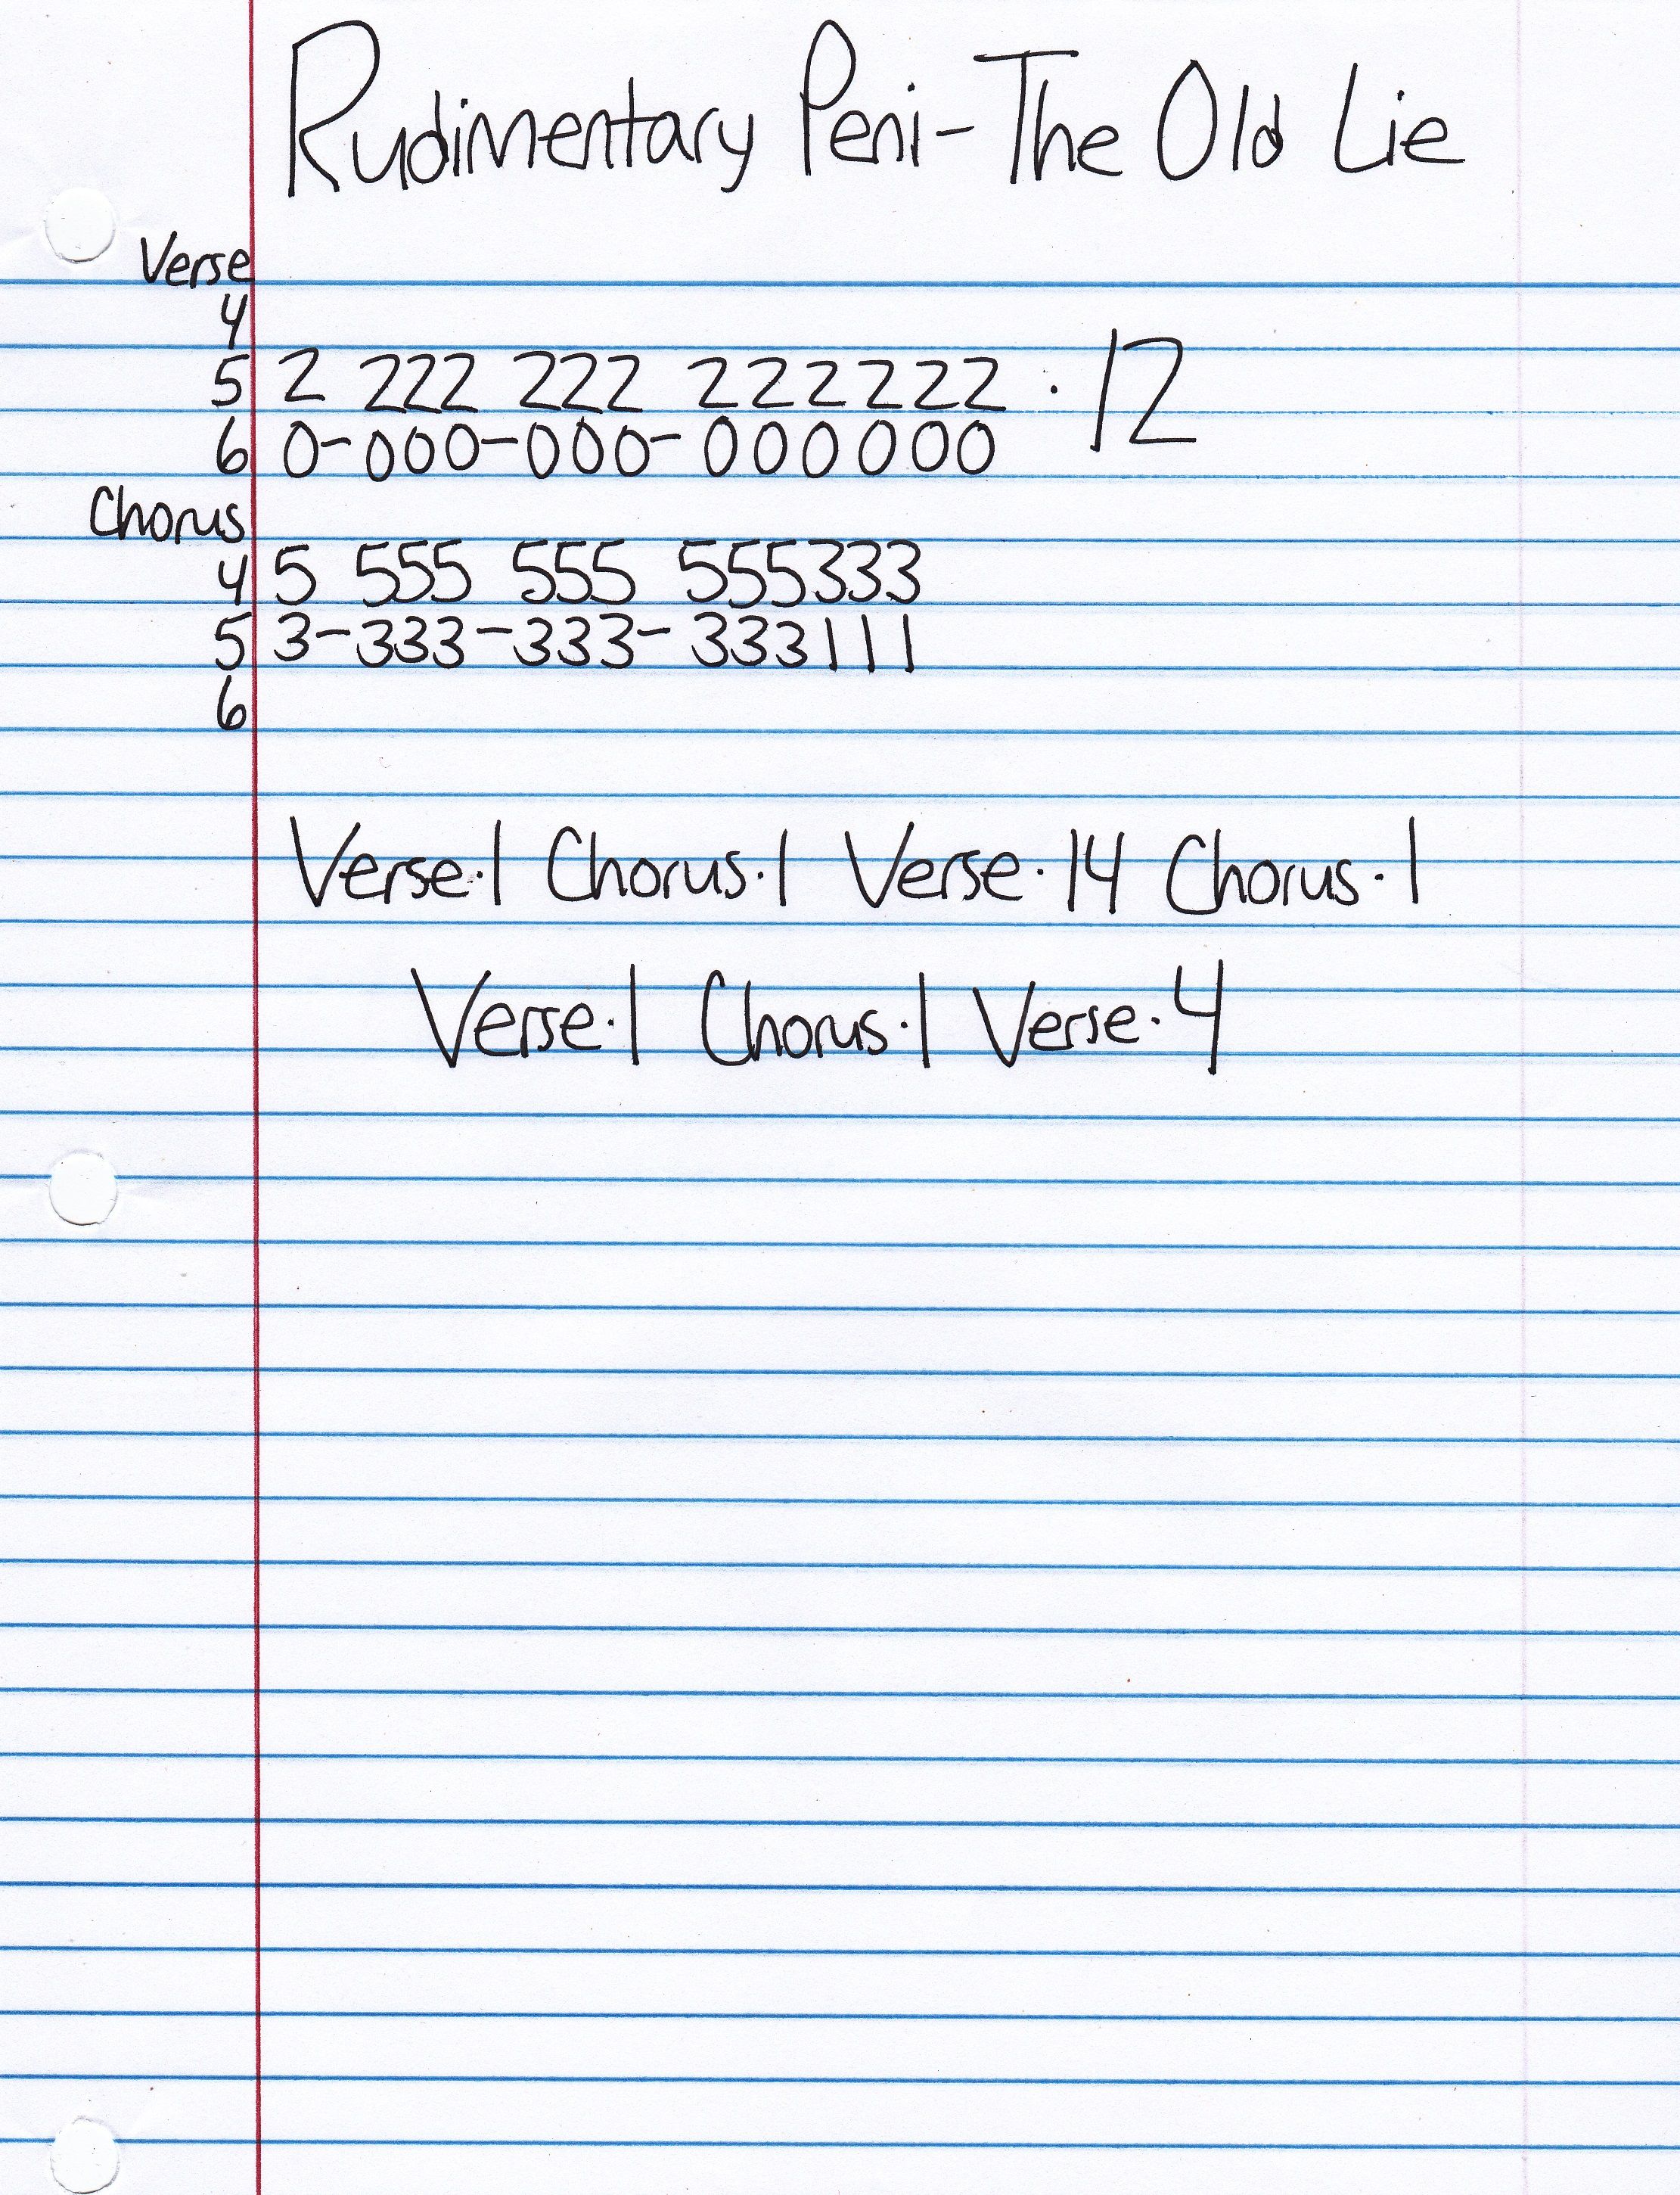 Rudimentary Peni- The Old Lie
Verse
4
5 2 222 222 222222 · 12
6 0-000-000-000000
Chorus
4 5 555 555 555333
5 3-333-333-333111
6
Verse·1 Chorus·1 Verse·14 Chorus·1
Verse·1 Chorus·1 Verse·4